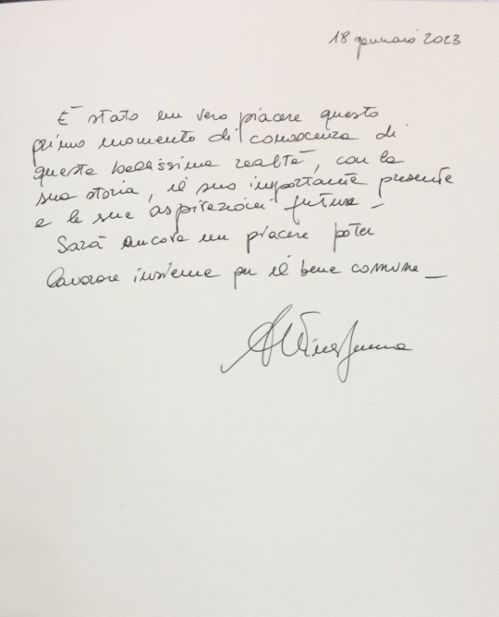 18 gennaio 2023
È stato un vero piacere questo
primo momento di conoscenza di
questa bellissima realtà, con la
sua storia, il suo importante presente
e le sue aspirazioni future –
Sarà ancora un piacere poter
lavorare insieme per il bene comune –